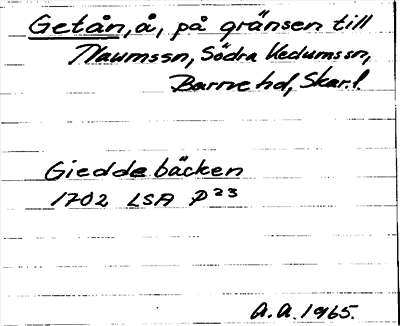 Getån, å, på gränsen till
Naumssn, Södra Kedumssn,
Barne hd, Skar.l.
Giedde bäcken
1702 LSA P23
A.A. 1965.